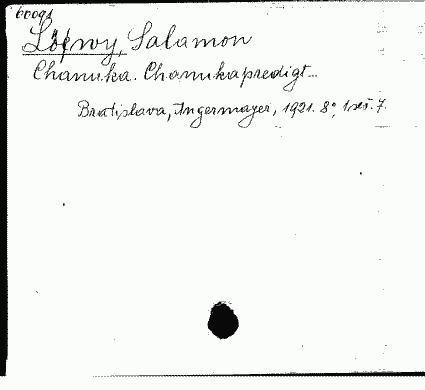 60091
Löewy, Salamon
Chanuka. Chanukapredigt...
Bratislava, Angermayer, 1921. 8°,